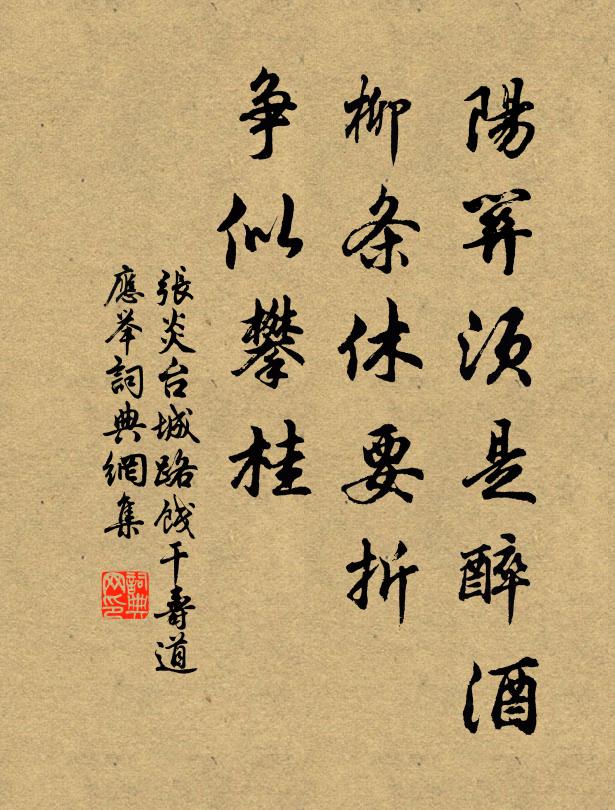 陽關須是醉酒
柳条休要折
争似攀桂
張炎台城路餞干壽道
應举詞典網集
詞典
网印